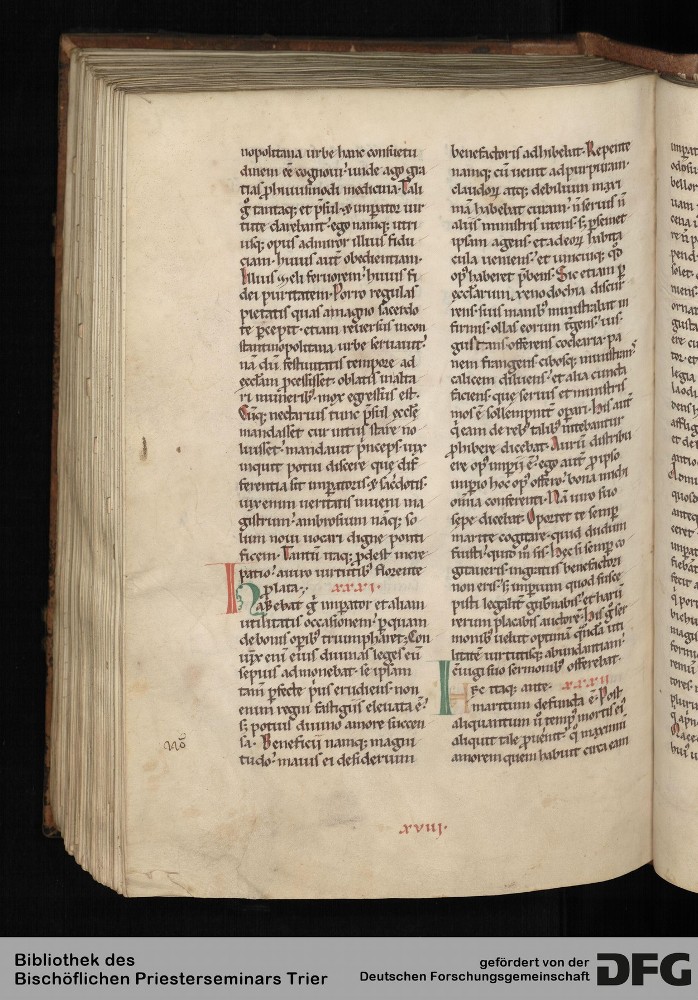 nopolitana urbe hanc consuetu
dinem eē cognoui. unde ago gra
tias
medicina. Tali
g̊ tantaq; et p̄sul & impērator uir
tute clarebant. ego namq; utri
usq; opus admiror illius fidu
ciam. huius autē obedientiam.
Illius feruorem. huius fi
dei puritatem. Porro regulas
pietatis quas a magno sacerdo
te p̄cepit. etiam reuersus in con
stantinopolitana urbe seruauit.
nā dū festiuitatis tempore ad
eccl̄am p̄cessisset. oblatis in alta
ri munerib; mox egressus est.
Cūq; nectarius tunc p̄sul eccl̄ę
mandasset cur intus stare no
luisset. mandauit p̄nceps. uix
inquit potui discere que dif
ferentia sit imp̄atoris & sac̄dotis.
uix enim ueritatis inueni ma
gistrum. ambrosium nāq; so
lum noui uocari digne ponti
ficem. Tantū itaq; p̄dest incre
patio. a uiro uirtutib; florente
plata. xxxi.
Habebat g̊ imp̄ator et aliam
utilitatis occasionem. p quam
de bonis opib; triumpharet. Con
iux enī eius diuinas leges eū
sepius admonebat. se ipsam
tam̄ p̄fecte p̄us erudiens. non
enim regni fastigiis eleuata ē.
s; potius diuino amore succen
sa. Beneficii namq; magni
tudo. maius ei desiderium
benefactoris adhibebat. Repente
namq; cū uenit ad purpuram.
claudoꝝ atq; debilium maxi
mā habebat curam. n̄ seruis n̄
aliis ministris utens. s; p semet
ipsam agens. et ad eoꝝ habita
cula ueniens. et unicuiq; qd̄
op; haberet p̄bens. Sic etiam p
eccl̄arum xenodochia discur
rens. suis manib; ministrabat in
firmis. ollas eorum t̄gens. ius
gustans. offerens coclearia. pa
nem frangens. cibosq; ministrans
calicem diluens. et alia cuncta
faciens. que seruis et ministris
mos ē sollempnit̄ opari. His autē
q eam de reb; talib; nitebantur
phibere dicebat. Aurū distribu
ere op; imp̄ii ē. ego autē p ipso
imp̄io hoc op; offero. bona michi
omīa conferenti. Nā uiro suo
sepe dicebat. Oportet te semp
marite cogitare. quid dudum
fuisti. quid m̊ sis. hec si semp co
gitaueris. ingratus benefactori
non eris. s; imp̄ium quod susce
pisti legalit̄ gubnabis. et harū
rerum placabis auctorē. His g̊ ser
monib; uelut optimā quandā uti
litatē uirtutisq; abundantiam.
cōiugi suo sermonib; offerebat.
Hęc itaq; ante xxxii
maritum defuncta ē. Post
aliquantum u̅ temp; mortis ei;
aliquit tale puenit. q maximū
amorem quem habuit circa eam
Noͫ
xviii.
Bibliothek des
Bischöflichen Priesterseminars Trier
gefördert von der
Deutschen Forschungsgemeinschaft
DFG